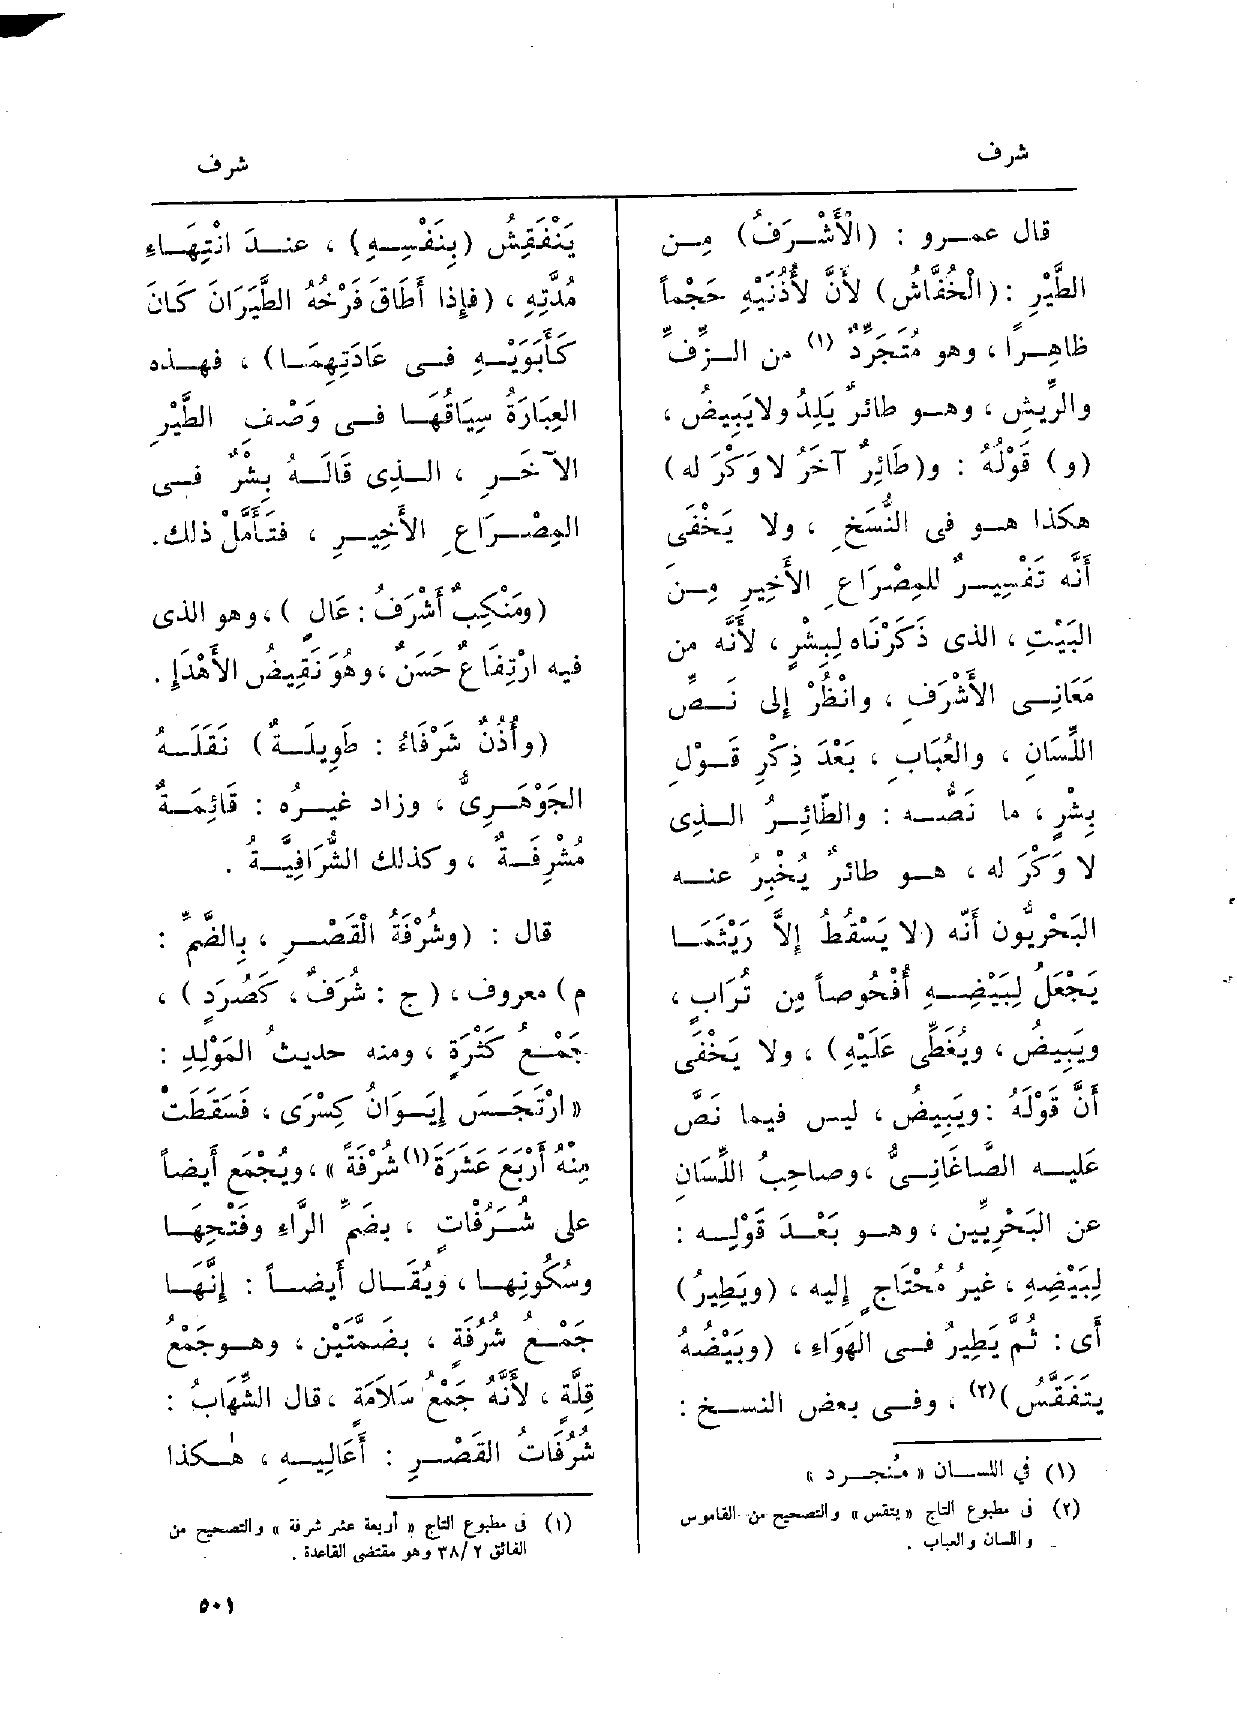 شرف
قال عمرو : (الأَشْرَفُ) مِن
الطَّيْرِ : (الْخُفَّاش) لأَنَّ لأُذُنَيْهِ حَجْماً
ظاهِراً ، وهو مُتَجَرِّدٌ (١) من الزِّفِّ
والرِّيش ، وهو طائرٌ يَلِدُ ولايَبِيضُ ،
(و) قَوْلُهُ : و(طَائِرٌ آخَرُ لا وَكْرَ له)
هكذا هو فى النُّسَخِ ، ولا يَخْفَى
أَنَّه تَفْسِيرٌ للمِصْرَاعِ الأَخِيرِ مِنَ
البَيْتِ ، الذى ذَكَرْنَاه لِبِشْرٍ ، لأَنَّه من
مَعَانِى الأَشْرَفِ ، وانْظُرْ إلى نَصِّ
اللِّسَانِ ، والعُبَابِ ، بَعْدَ ذِكْرِ قَوْلِ
بِشْرٍ ، ما نَصُّه : والطَّائِرُ الذِى
لا وَكْرَ له ، هو طائرٌ يُخْبِرُ عنه
البَحْرِيُّون أَنَّه (لا يَسْقُطُ إلاَّ رَيْثَمَا
يَجْعَلُ لِبَيْضِهِ أُفْحُوصاً مِن تُرَابٍ ،
ويَبِيضُ ، ويُغَطِّى عَلَيْهِ) ، ولا يَخْفَى
أَنَّ قَوْلَهُ : ويَبِيضُ ، ليس فيما نَصَّ
عليه الصَّاغَانِىُّ ، وصاحِبُ اللِّسَانِ
عن البَحْرِيِّين ، وهو بَعْدَ قَوْلِه :
لِبَيْضِهِ ، غيرُ مُحْتَاجٍ إليه ، (ويَطِيرُ)
أى : ثُمَّ يَطِيرُ فى الهَوَاءِ ، (وبَيْضُهُ
يتفَقَّسُ )(٢) ، وفى بعض النسخ :
(١) في اللسان « مُنجرد »
(٢) فى مطبوع التاج « يتقس » والتصحيح من القاموس
واللسان والعباب .
شرف
يَنْفَقِسُ (بِنَفْسِهِ) ، عندَ انْتِهَاءِ
مُدَّتِهِ ، (فإذا أَطَاقَ فَرْخُهُ الطَّيَرَانَ كَانَ
كَأَبَوَيْهِ فى عَادَتِهِمَا) ، فهذه
العِبَارَةُ سِيَاقُهَا فى وَصْفِ الطَّيْرِ
الآخَرِ ، الذى قَالَهُ بِشْرٌ فى
المِصْرَاعِ الأَخِيرِ ، فتَأَمَّلْ ذلك.
(ومَنْكِبٌ أَشْرَفُ : عَالٍ )، وهو الذى
فيه ارْتِفَاعٌ حَسَنٌ ، وهُوَ نَقِيضُ الأَهْدَإِ .
(وأُذُنٌ شَرْفَاءُ : طَوِيلَةٌ) نَقَلَهُ
الجَوْهَرِىُّ ، وزاد غيرُه : قَائِمَةٌ
مُشْرِفَةٌ ، وكذلك الشُّرَافِيَّةُ .
قال : (وشُرْفَةُ القَصْرِ ، بِالضَّمِّ :
م) معروف ، ( ج : شُرَفٌ ، كَصُرَدٍ ) ،
جَمْعُ كَثْرَةٍ ، ومنه حديثُ المَوْلِدِ :
« ارْتَجَسَ إِيوَانُ كِسْرَى ، فَسَقَطَتْ
مِنْهُ أَرْبَعَ عَشْرَةَ(١) شُرْفَةً » ، ويُجْمَع أيضاً
على شُرُفَاتٍ ، بضَمِّ الرَّاءِ وفَتْحِهَا
وسُكُونِها ، ويُقَال أَيضاً : إِنَّهَا
جَمْعُ شُرُفَةٍ ، بضَمَّتَيْنِ ، وهو جَمْع
قِلَّةٍ ، لأَنَّهُ جَمْعُ سَلاَمَةٍ ، قال الشِّهَابُ :
شُرُفَاتُ القَصْرِ : أَعَالِيهِ ، هٰكذا
(١) فى مطبوع التاج « أربعة عشر شرفة » والتصحيح من
الفائق ٣٨/٢ وهو مقتضى القاعدة .
٥٠١